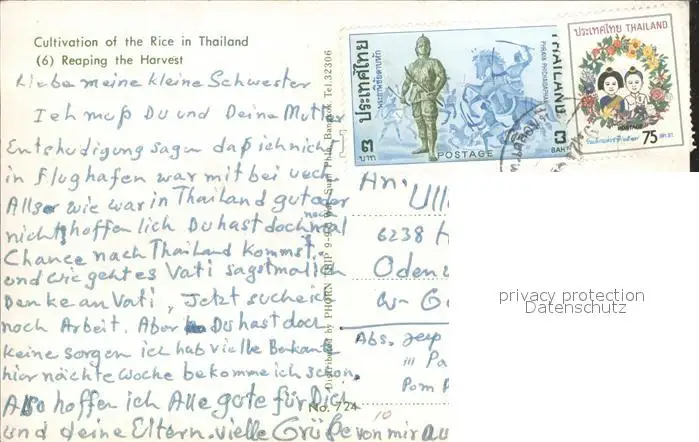 Cultivation of the Rice in Thailand
(6) Reaping the Harvest
Liebe meine kleine Schwester
Ich muß Du und Deine Mutter
Entschudigung sagen daß ich nicht
in flughafen war mit bei uech.
Allso wie war in Thailand gut oder
nicht, hoffen lich Du hast doch noch mal
Chance nach Thailand kommst.
und wie geht es Vati sagst mal ich
Denke an Vati, Jetzt suche ich
noch Arbeit. Aber Du hast doch
keine sorgen ich hab vielle Bekante
hier nächte woche bekomme ich schon.
Also hoffen ich Alle gute für Dich
und deine Eltern. vielle Grüße von mir au
No. 724
10
Distributed by PHORN THIP Bangkok. Tel. 32306
ประเทศไทย
THAILAND
๓
บาท
POSTAGE
3
BAHT
ประเทศไทย THAILAND
POSTAGE
75
An.
Ull
6238 H
Odenw
W- G
Abs. Jeep
111 Pa
Pom P
privacy protection
Datenschutz